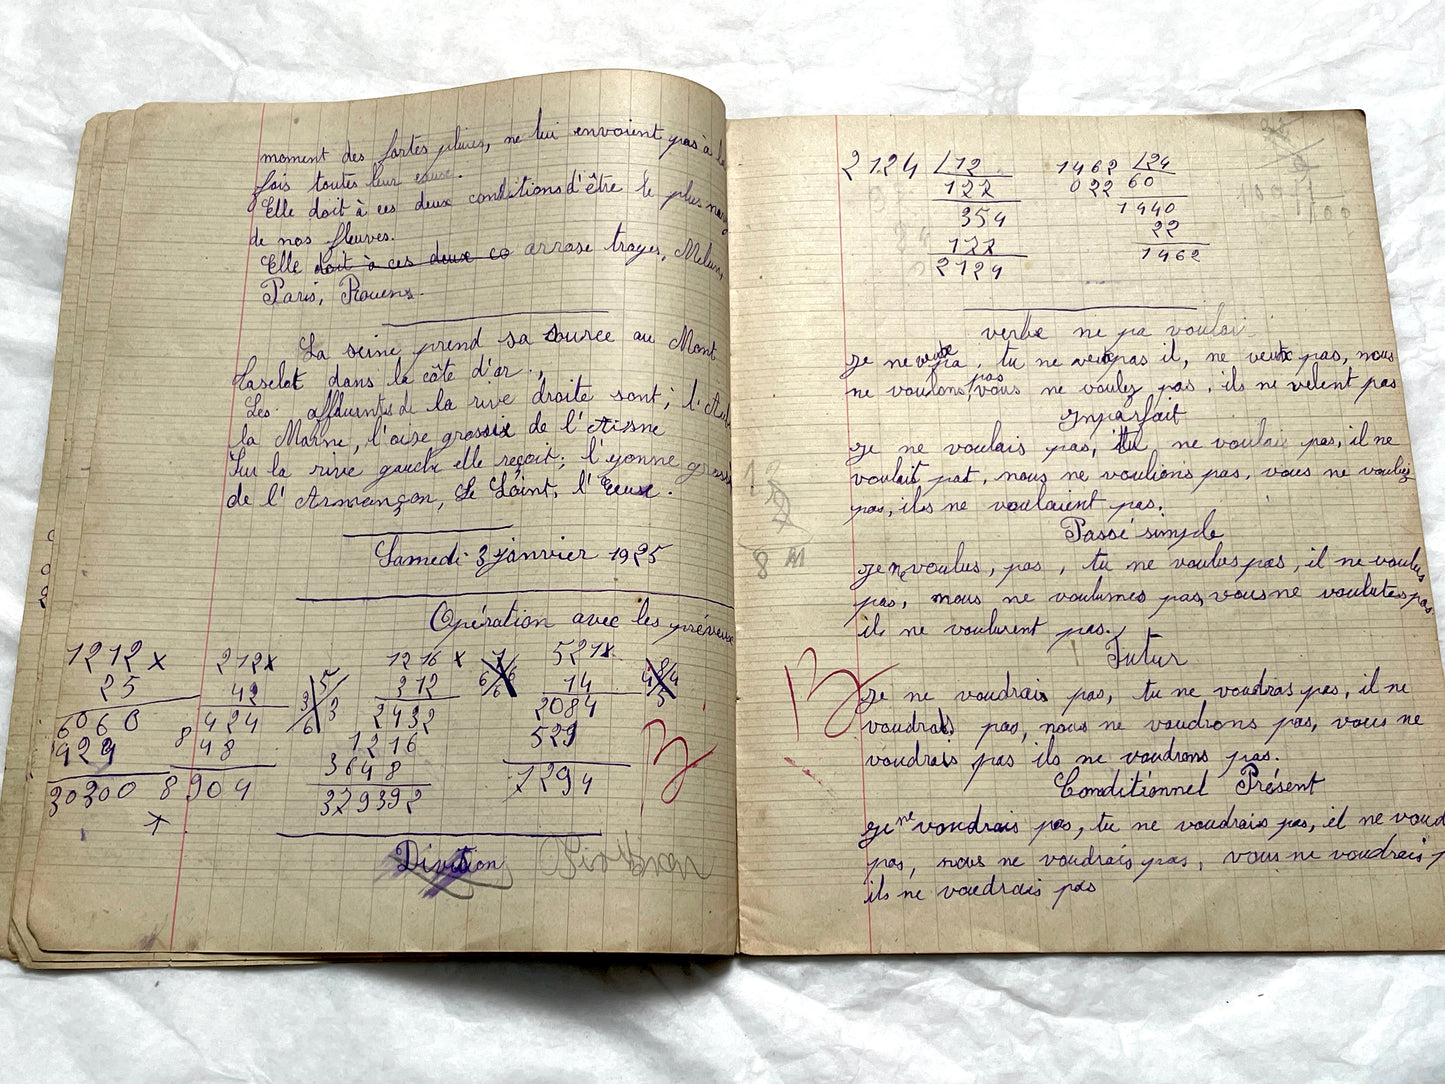 moment des fortes pluies, ne lui envoient pas à la
fois toutes leur
Elle doit à ces deux conditions d'être le plus
de nos fleuves.
Elle doit à ces deux co arrose troyes, Melun,
Paris, Rouens.
La seine prend sa source au Mont
Taselot dans la côte d'or.,
Les affluents de la rive droite sont; l'Aub
la Marne, l'oise grossix de l'Aisne
Sur la rive gauche elle reçoit; l'yonne grossi
de l'Armançon, Le Loint, l'Eeux.
Samedi 3 janvier 1925
Opération avec les preuves
1212 x 212 x 1216 x 7 521 x 8
25 42 5 312 6 6 14 4 4
6060 424 3 3 2432 6 2084 5
848 6 1216 521
30300 8904 3648 7294
379392
B
Division Division
2124 12 1462 24
177 022 60
354 1440
177 22
2124 1462
verbe ne pa vouloir
je ne veuxe pa, tu ne veux pas il, ne veut pas, nous
ne voulons pas, vous ne voulez pas, ils ne velent pas
Imparfait
je ne voulais pas, tu ne voulais pas, il ne
voulait pat, nous ne voulions pas, vous ne vouliez
pas, ils ne voulaient pas.
12
7
8 M
Passé simple
je ne voulus, pas, tu ne voulus pas, il ne voulus
pas, nous ne voulumes pas, vous ne voulutes pas
ils ne voulurent pas.
Futur
B
je ne voudrais pas, tu ne voudras pas, il ne
voudras pas, nous ne voudrons pas, vous ne
voudrais pas ils ne voudrons pas.
Conditionnel Présent
je ne voudrais pas, tu ne voudrais pas, il ne voud
pas, nous ne voudrais pas, vous ne voudrais p
ils ne voudrais pas